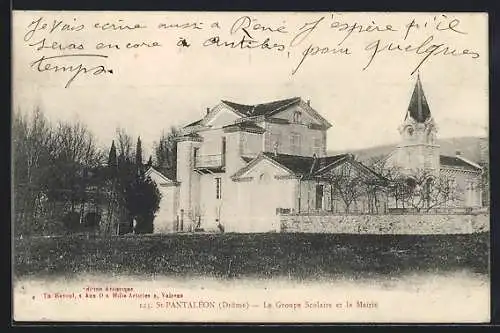 Je vais ecrire aussi a René j'espère qu'il
seras encore à antibes, pour quelque
temps
Edition Artistique
Th Berioul, 1 Aux D x Mille Articles », Valence
123. St-PANTALÉON (Drôme) — Le Groupe Scolaire et la Mairie